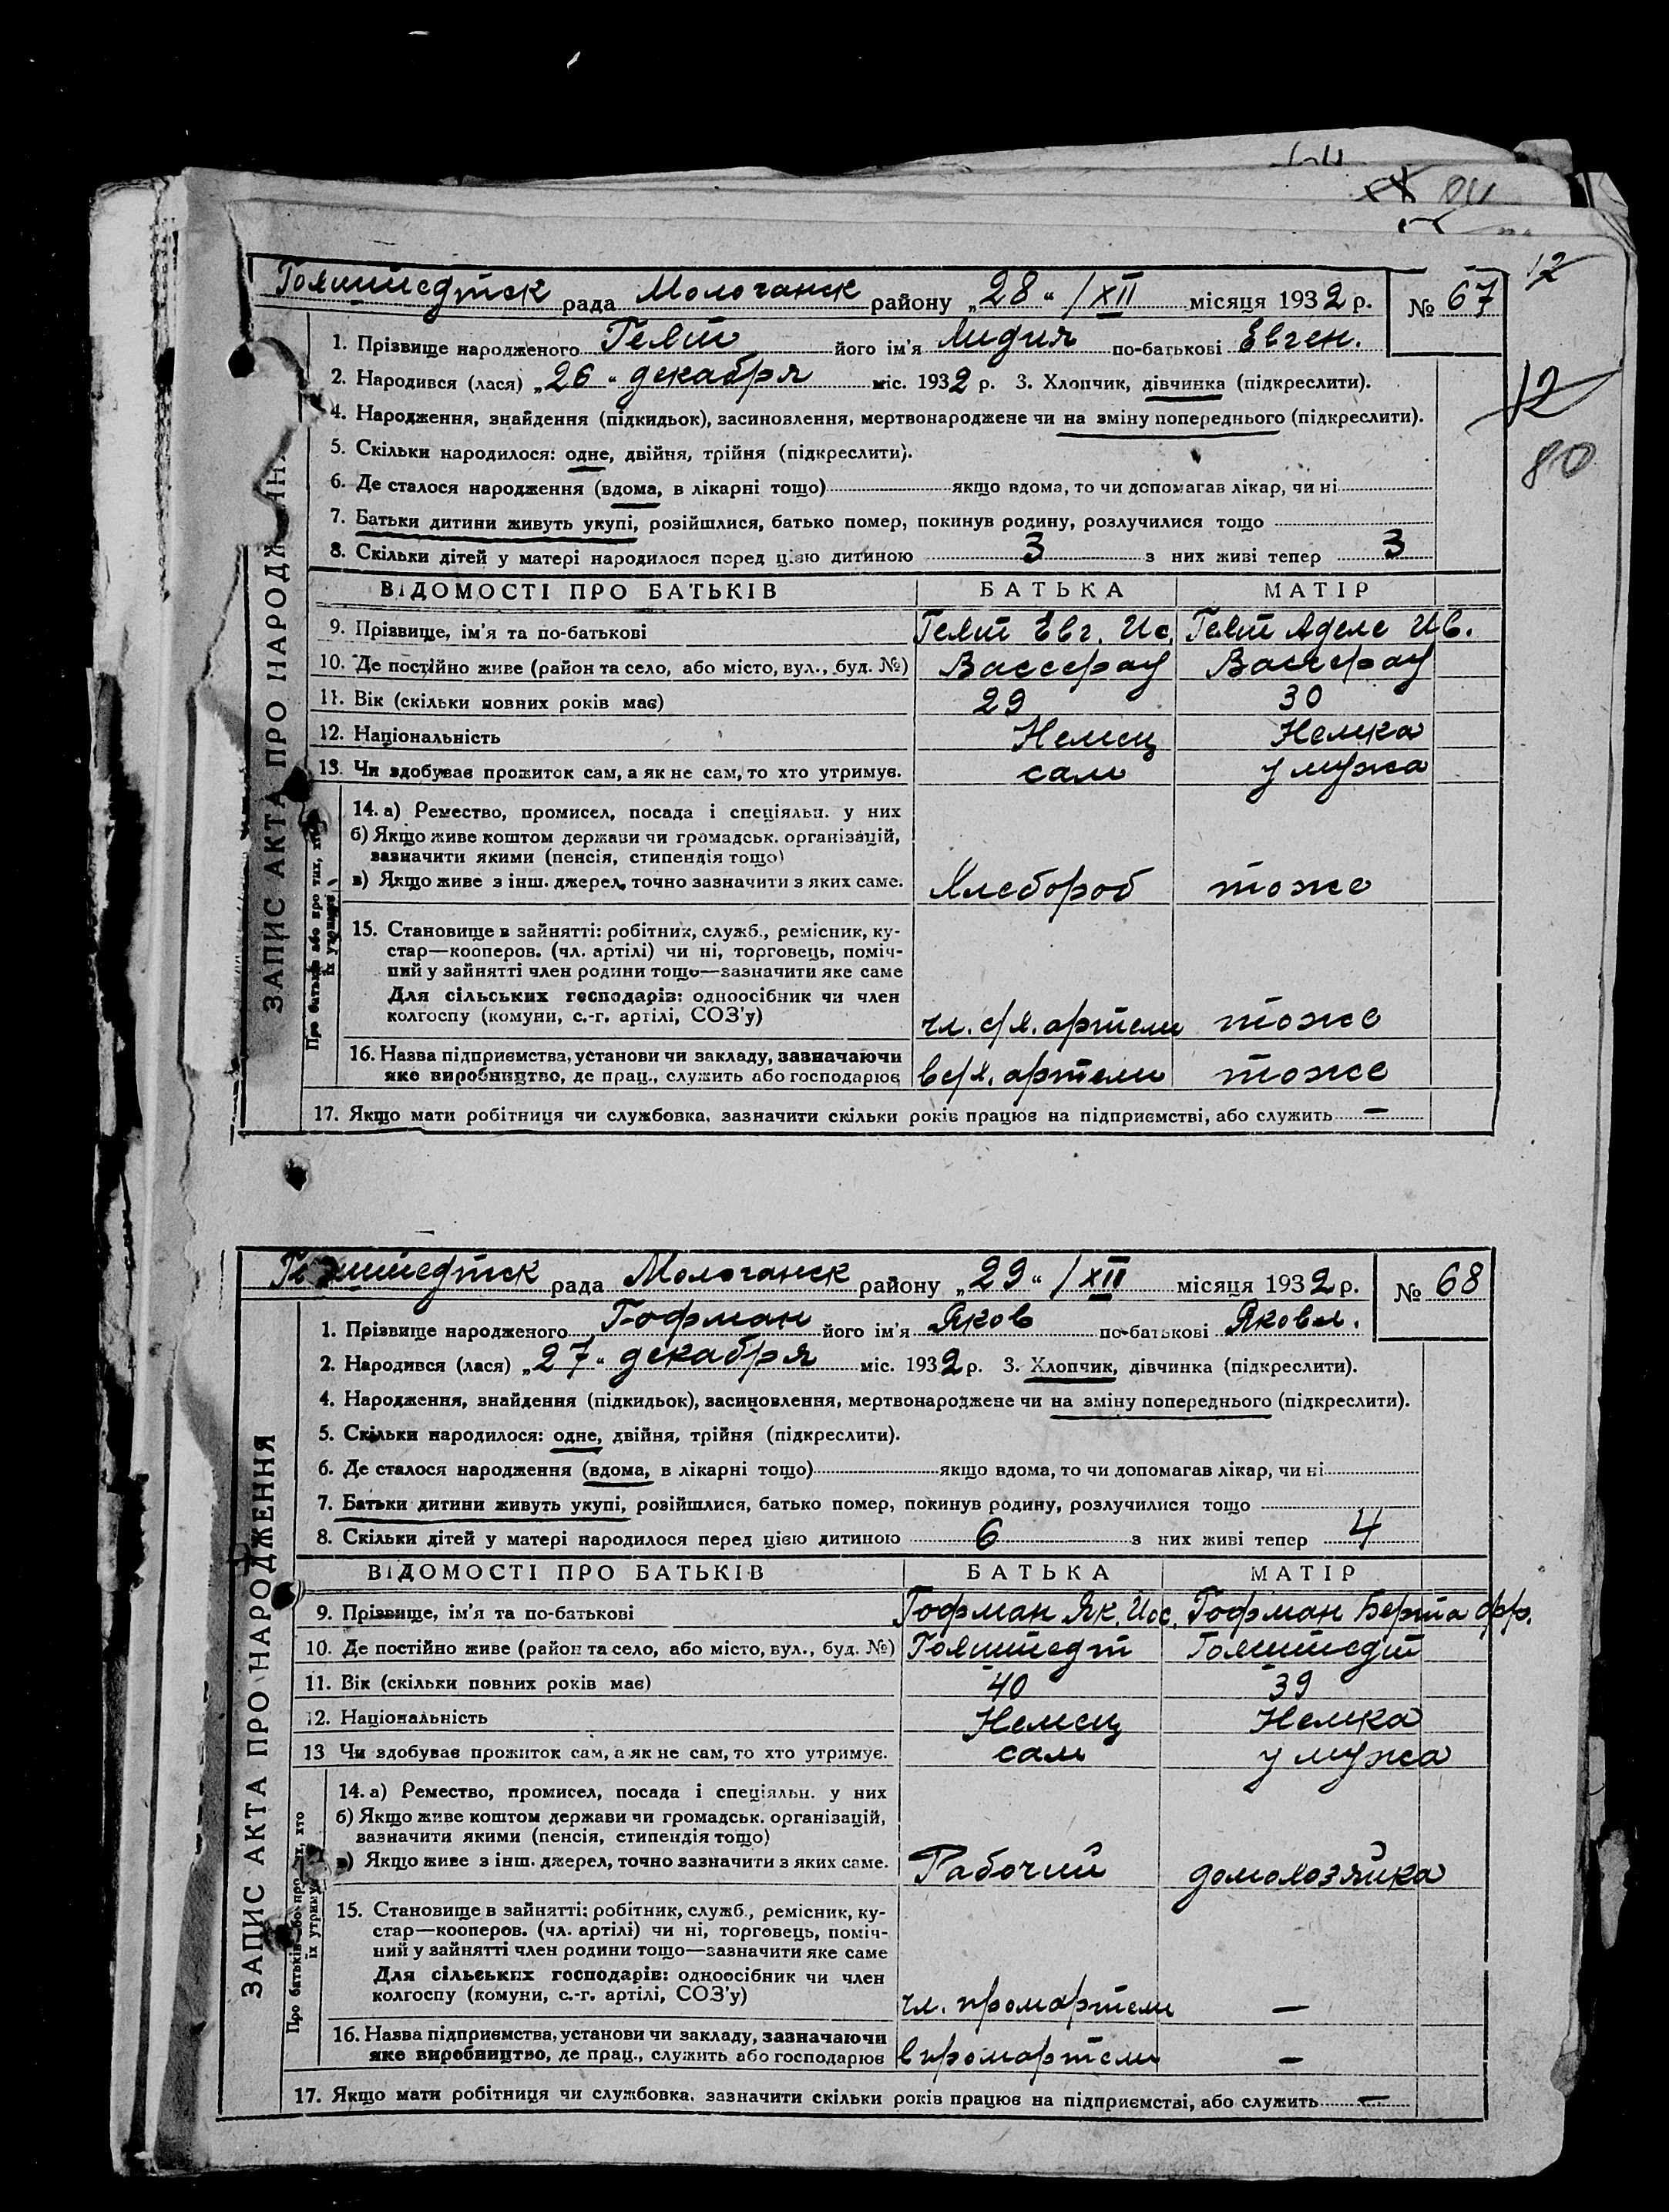 12
Гохштедтск рада Молочанск району „28“ / XII місяця 1932 р. № 67
1. Прізвище народженого Гехт його ім'я Лидия по-батькові Евген.
2. Народився (лася) „26“ декабря міс. 1932 р. 3. Хлопчик, дівчинка (підкреслити).
12
4. Народження, знайдення (підкидьок), засиновлення, мертвонароджене чи на зміну попереднього (підкреслити).
80
5. Скільки народилося: одне, двійня, трійня (підкреслити).
6. Де сталося народження (вдома, в лікарні тощо) якщо вдома, то чи допомагав лікар, чи ні
7. Батьки дитини живуть укупі, розійшлися, батько помер, покинув родину, розлучилися тощо
8. Скільки дітей у матері народилося перед цією дитиною 3 з них живі тепер 3
ВІДОМОСТІ ПРО БАТЬКІВ БАТЬКА МАТІР
9. Прізвище, ім'я та по-батькові Гехт Евг. Ис. Гехт Аделе Ив.
10. Де постійно живе (район та село, або місто, вул., буд. №) Вассерау Вассерау
11. Вік (скільки повних років має) 29 30
12. Національність Немец Немка
13. Чи здобуває прожиток сам, а як не сам, то хто утримує. сам у мужа
14. а) Ремество, промисел, посада і спеціяльн. у них
б) Якщо живе коштом держави чи громадськ. організацій,
зазначити якими (пенсія, стипендія тощо)
в) Якщо живе з інш. джерел, точно зазначити з яких саме. Хлебороб тоже
15. Становище в зайнятті: робітник, служб., ремісник, ку-
стар—кооперов. (чл. артілі) чи ні, торговець, поміч-
ний у зайнятті член родини тощо—зазначити яке саме
Для сільських господарів: одноосібник чи член
колгоспу (комуни, с.-г. артілі, СОЗ'у) чл. с/х. артели тоже
16. Назва підприємства, установи чи закладу, зазначаючи
яке виробництво, де прац., служить або господарює в с/х. артели тоже
17. Якщо мати робітниця чи службовка, зазначити скільки років працює на підприємстві, або служить —
ЗАПИС АКТА ПРО НАРОД
Про батьків або про тих, хто
їх утримує
Гохштедтск рада Молочанск району „29“ / XII місяця 1932 р. № 68
1. Прізвище народженого Гофман його ім'я Яков по-батькові Яковл.
2. Народився (лася) „27“ декабря міс. 1932 р. 3. Хлопчик, дівчинка (підкреслити).
4. Народження, знайдення (підкидьок), засиновлення, мертвонароджене чи на зміну попереднього (підкреслити).
5. Скільки народилося: одне, двійня, трійня (підкреслити).
6. Де сталося народження (вдома, в лікарні тощо) якщо вдома, то чи допомагав лікар, чи ні
7. Батьки дитини живуть укупі, розійшлися, батько помер, покинув родину, розлучилися тощо
8. Скільки дітей у матері народилося перед цією дитиною 6 з них живі тепер 4
ВІДОМОСТІ ПРО БАТЬКІВ БАТЬКА МАТІР
9. Прізвище, ім'я та по-батькові Гофман Як. Иос. Гофман Берта Фр.
10. Де постійно живе (район та село, або місто, вул., буд. №) Гохштедт Гохштедт
11. Вік (скільки повних років має) 40 39
12. Національність Немец Немка
13 Чи здобуває прожиток сам, а як не сам, то хто утримує. сам у мужа
14. а) Ремество, промисел, посада і спеціяльн. у них
б) Якщо живе коштом держави чи громадськ. організацій,
зазначити якими (пенсія, стипендія тощо)
в) Якщо живе з інш. джерел, точно зазначити з яких саме. Рабочий домохозяйка
15. Становище в зайнятті: робітник, служб., ремісник, ку-
стар—кооперов. (чл. артілі) чи ні, торговець, поміч-
ний у зайнятті член родини тощо—зазначити яке саме
Для сільських господарів: одноосібник чи член
колгоспу (комуни, с.-г. артілі, СОЗ'у) чл. промартели —
16. Назва підприємства, установи чи закладу, зазначаючи
яке виробництво, де прац., служить або господарює в промартели —
17. Якщо мати робітниця чи службовка, зазначити скільки років працює на підприємстві, або служить —
ЗАПИС АКТА ПРО НАРОДЖЕННЯ
Про батьків або про тих, хто
їх утримує